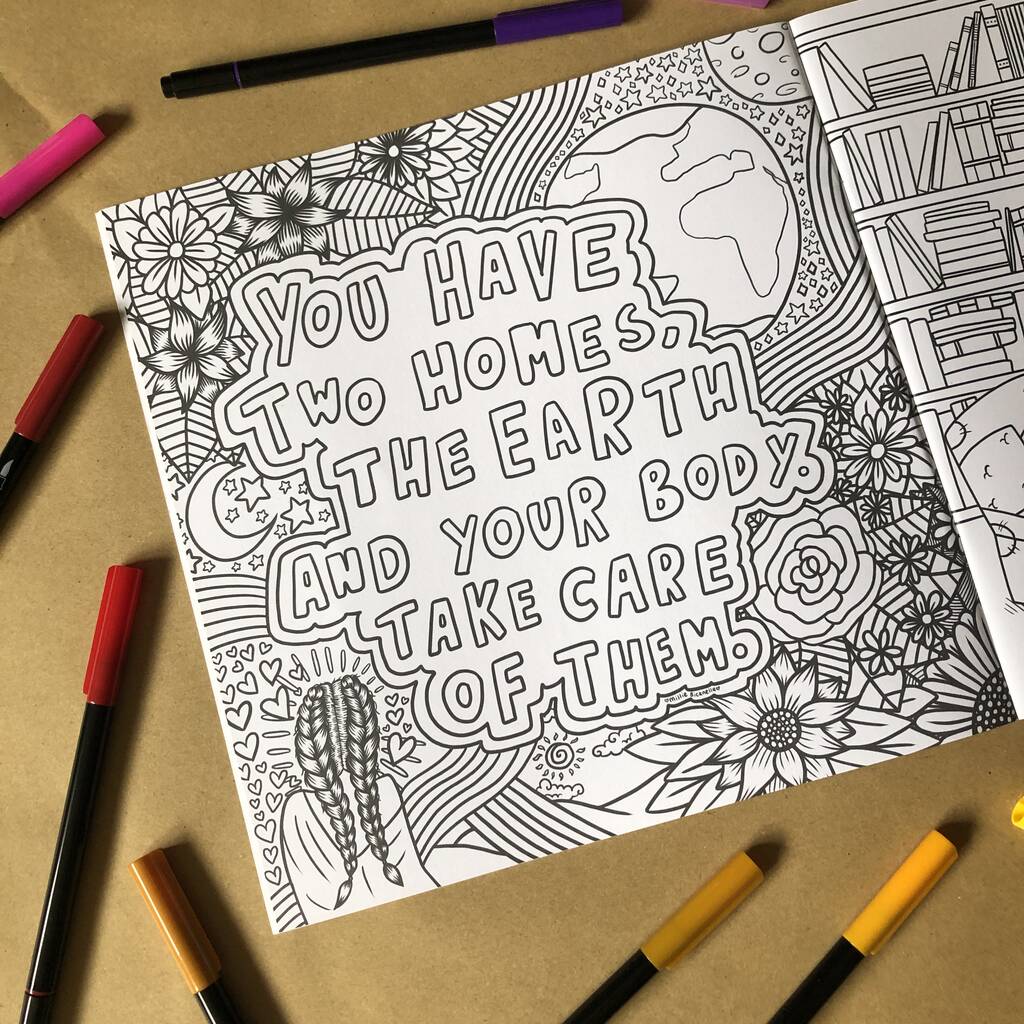 YOU HAVE
TWO HOMES,
THE EARTH
AND YOUR BODY.
TAKE CARE
OF THEM.